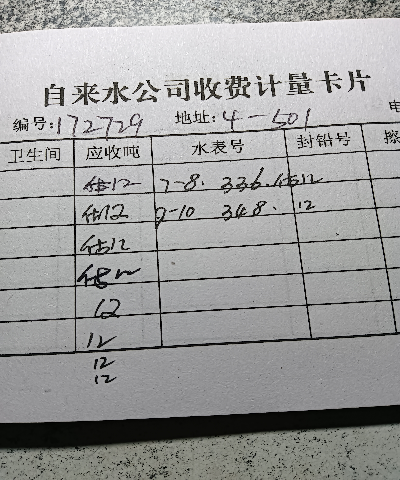 自来水公司收费计量卡片
编号:172729 地址:4-501 电
卫生间 应收吨 水表号 封铅号 擦
估12 7-8. 336. 估12
估12 9-10 348. 12
估12
估12
12
12
12
12